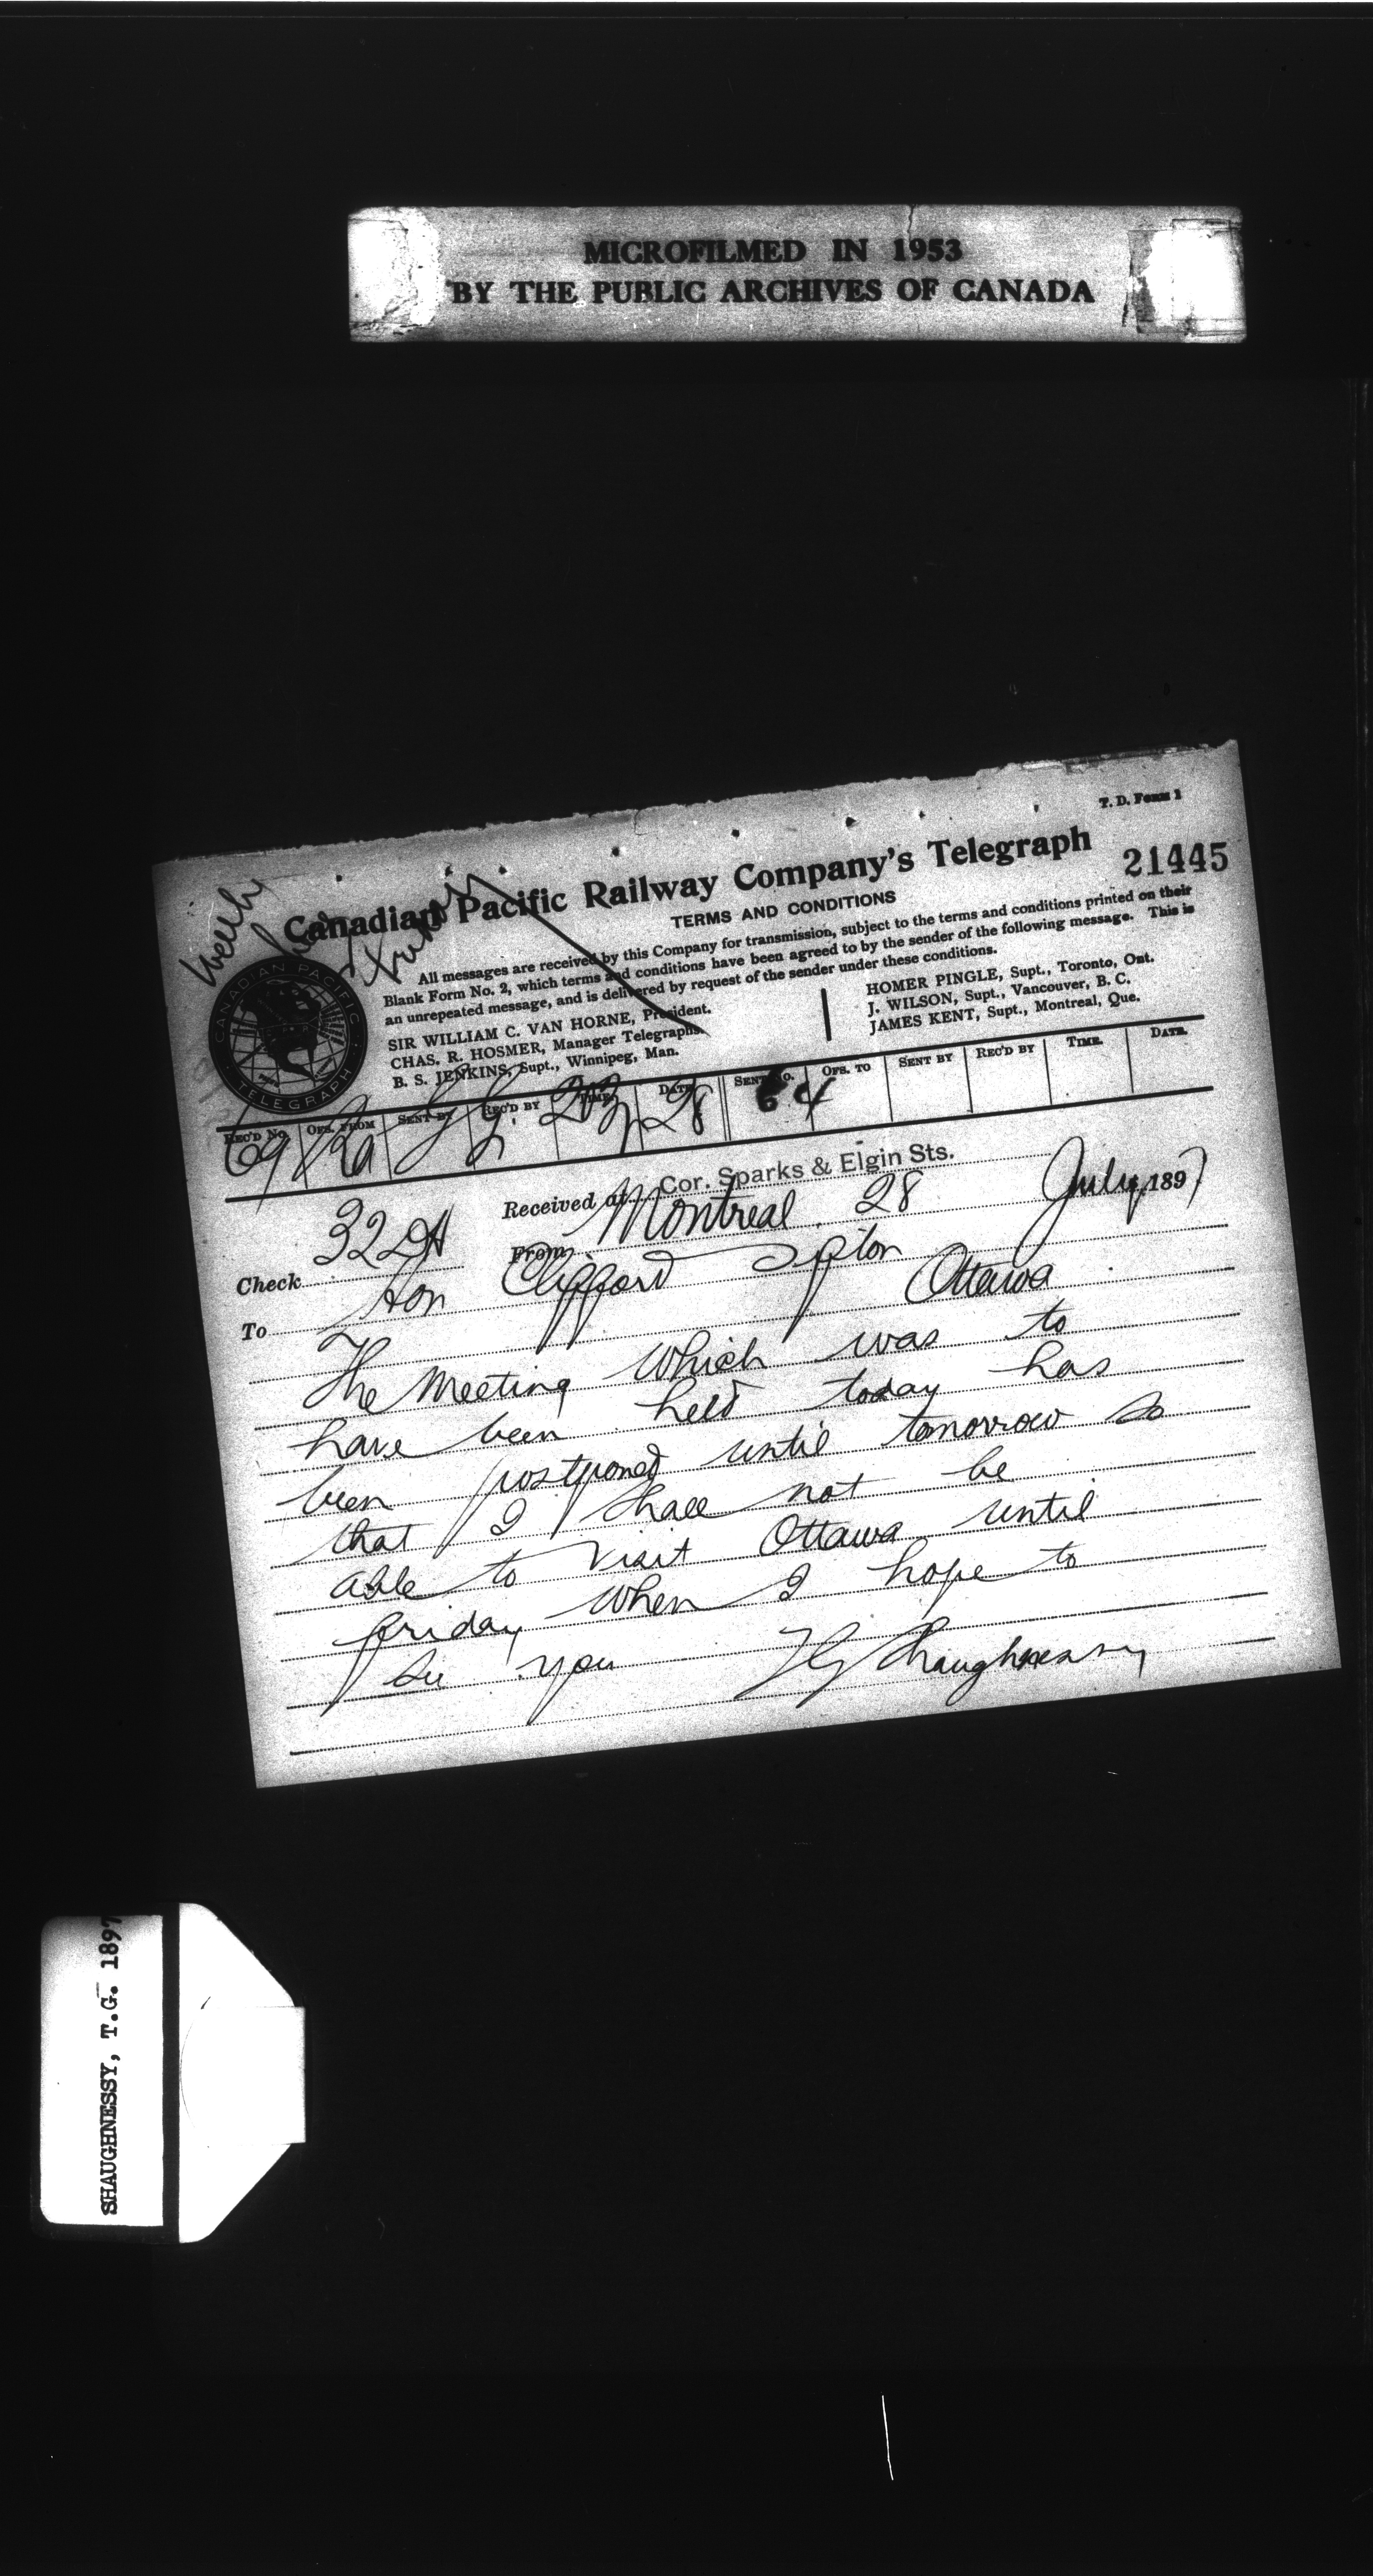 MICROFILMED IN 1953
BY THE PUBLIC ARCHIVES OF CANADA
T. D. Form 1
Canadian Pacific Railway Company's Telegraph
21445
TERMS AND CONDITIONS
All messages are received by this Company for transmission, subject to the terms and conditions printed on their
Blank Form No. 2, which terms and conditions have been agreed to by the sender of the following message. This is
an unrepeated message, and is delivered by request of the sender under these conditions.
SIR WILLIAM C. VAN HORNE, President.
CHAS. R. HOSMER, Manager Telegraphs.
B. S. JENKINS, Supt., Winnipeg, Man.
HOMER PINGLE, Supt., Toronto, Ont.
J. WILSON, Supt., Vancouver, B. C.
JAMES KENT, Supt., Montreal, Que.
CANADIAN PACIFIC
TELEGRAPH
REC'D No. OFS. FROM SENT BY REC'D BY TIME. DATE SENT NO. OFS. TO SENT BY REC'D BY TIME. DATE.
69 Ra 28 64
Received at Cor. Sparks & Elgin Sts.
Check 32 DH From Montreal 28 July 1897
To Hon Clifford Sifton
Ottawa
The Meeting which was to
have been held today has
been postponed until tomorrow so
that I shall not be
able to visit Ottawa until
friday when I hope to
see you TG Shaughnessy
SHAUGHNESSY, T.G. 1897